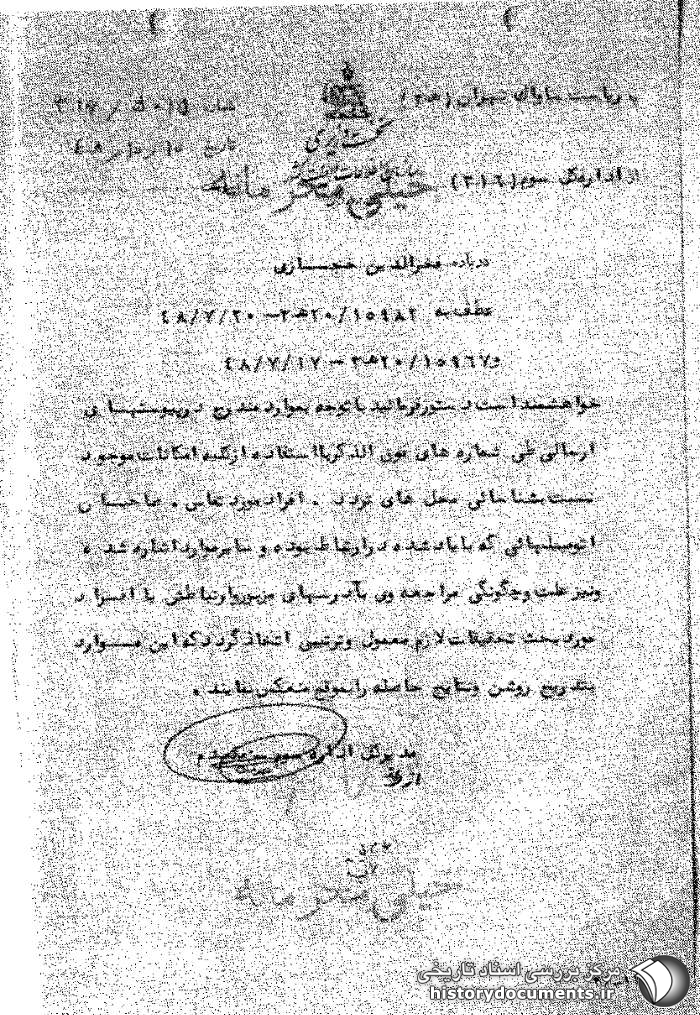 به ریاست ساواک تهران (۲۰ ه ۳)
از اداره کل سوم (۳۱۶)
نخست وزیری
سازمان اطلاعات و امنیت کشور
خیلی محرمانه
شماره
تاریخ
درباره فخرالدین حجازی
عطف به ۱۵۹۸۲/۲۰ه‍۳ – ۴۸/۷/۲۰
و ۱۵۹۶۷/۲۰ه‍۳ – ۴۸/۷/۱۷
خواهشمند است دستور فرمائید با توجه بموارد مندرج در پیوستهای
ارسالی طی شماره های فوق الذکر با استفاده از کلیه امکانات موجود
نسبت بشناسائی محل های تردد . افراد مورد تماس . صاحبان
اتومبیلهائی که با یاد شده در ارتباط بوده و سایر موارد اشاره شده
ونیز علت و چگونگی مراجعه وی بآدرسهای مزبور و ارتباطش با افراد
مورد بحث تحقیقات لازم معمول و ترتیبی اتخاذ گردد که این موارد
بتدریج روشن و نتایج حاصله را بموقع منعکس نمایند .
مدیرکل اداره سوم
از طرف
خیلی محرمانه
مرکز بررسی اسناد تاریخی
historydocuments.ir